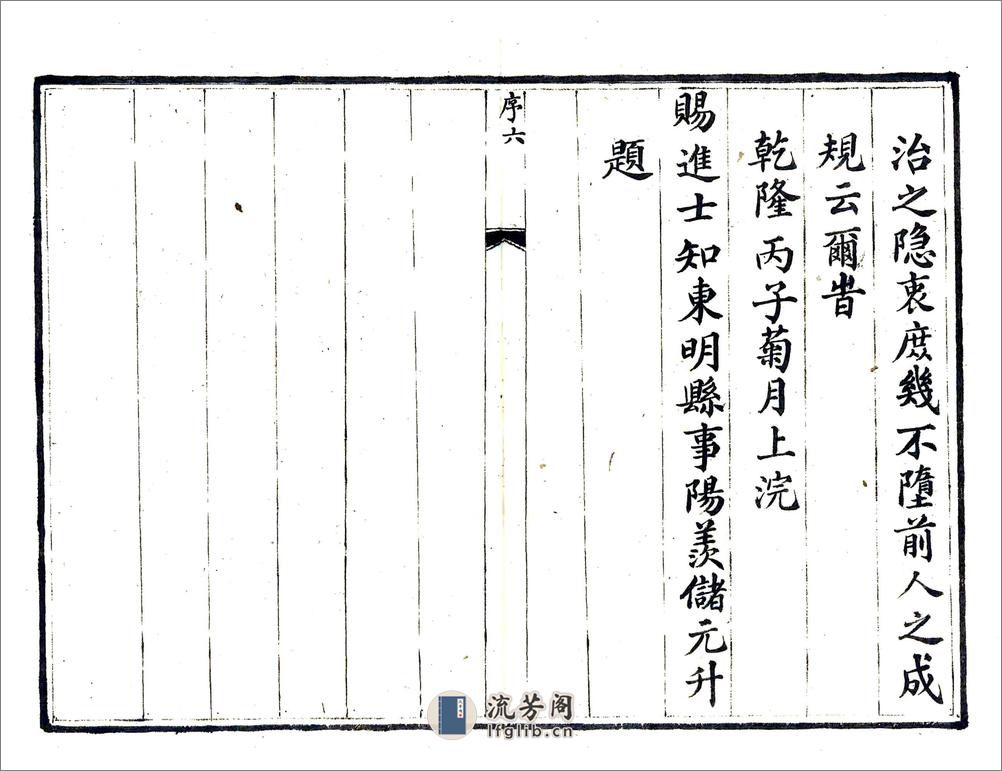 治之隐衷庶幾不墮前人之成
規云爾旹
乾隆丙子菊月上浣
賜進士知東明縣事陽羨儲元升
題
序六
流芳阁
lfglib.cn